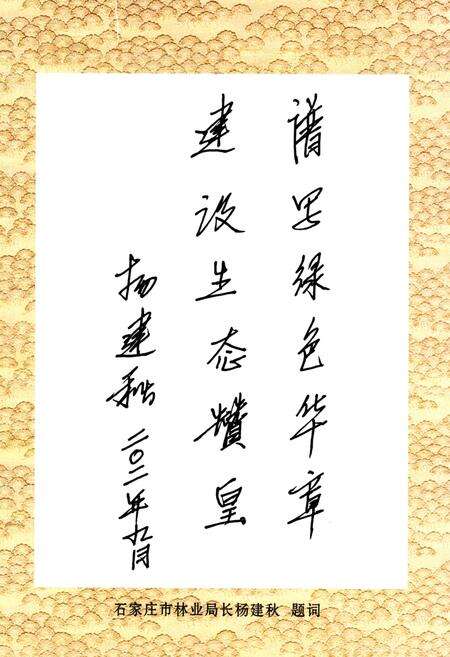 谱写绿色华章
建设生态赞皇
杨建秋
二〇一二年九月
石家庄市林业局长杨建秋 题词